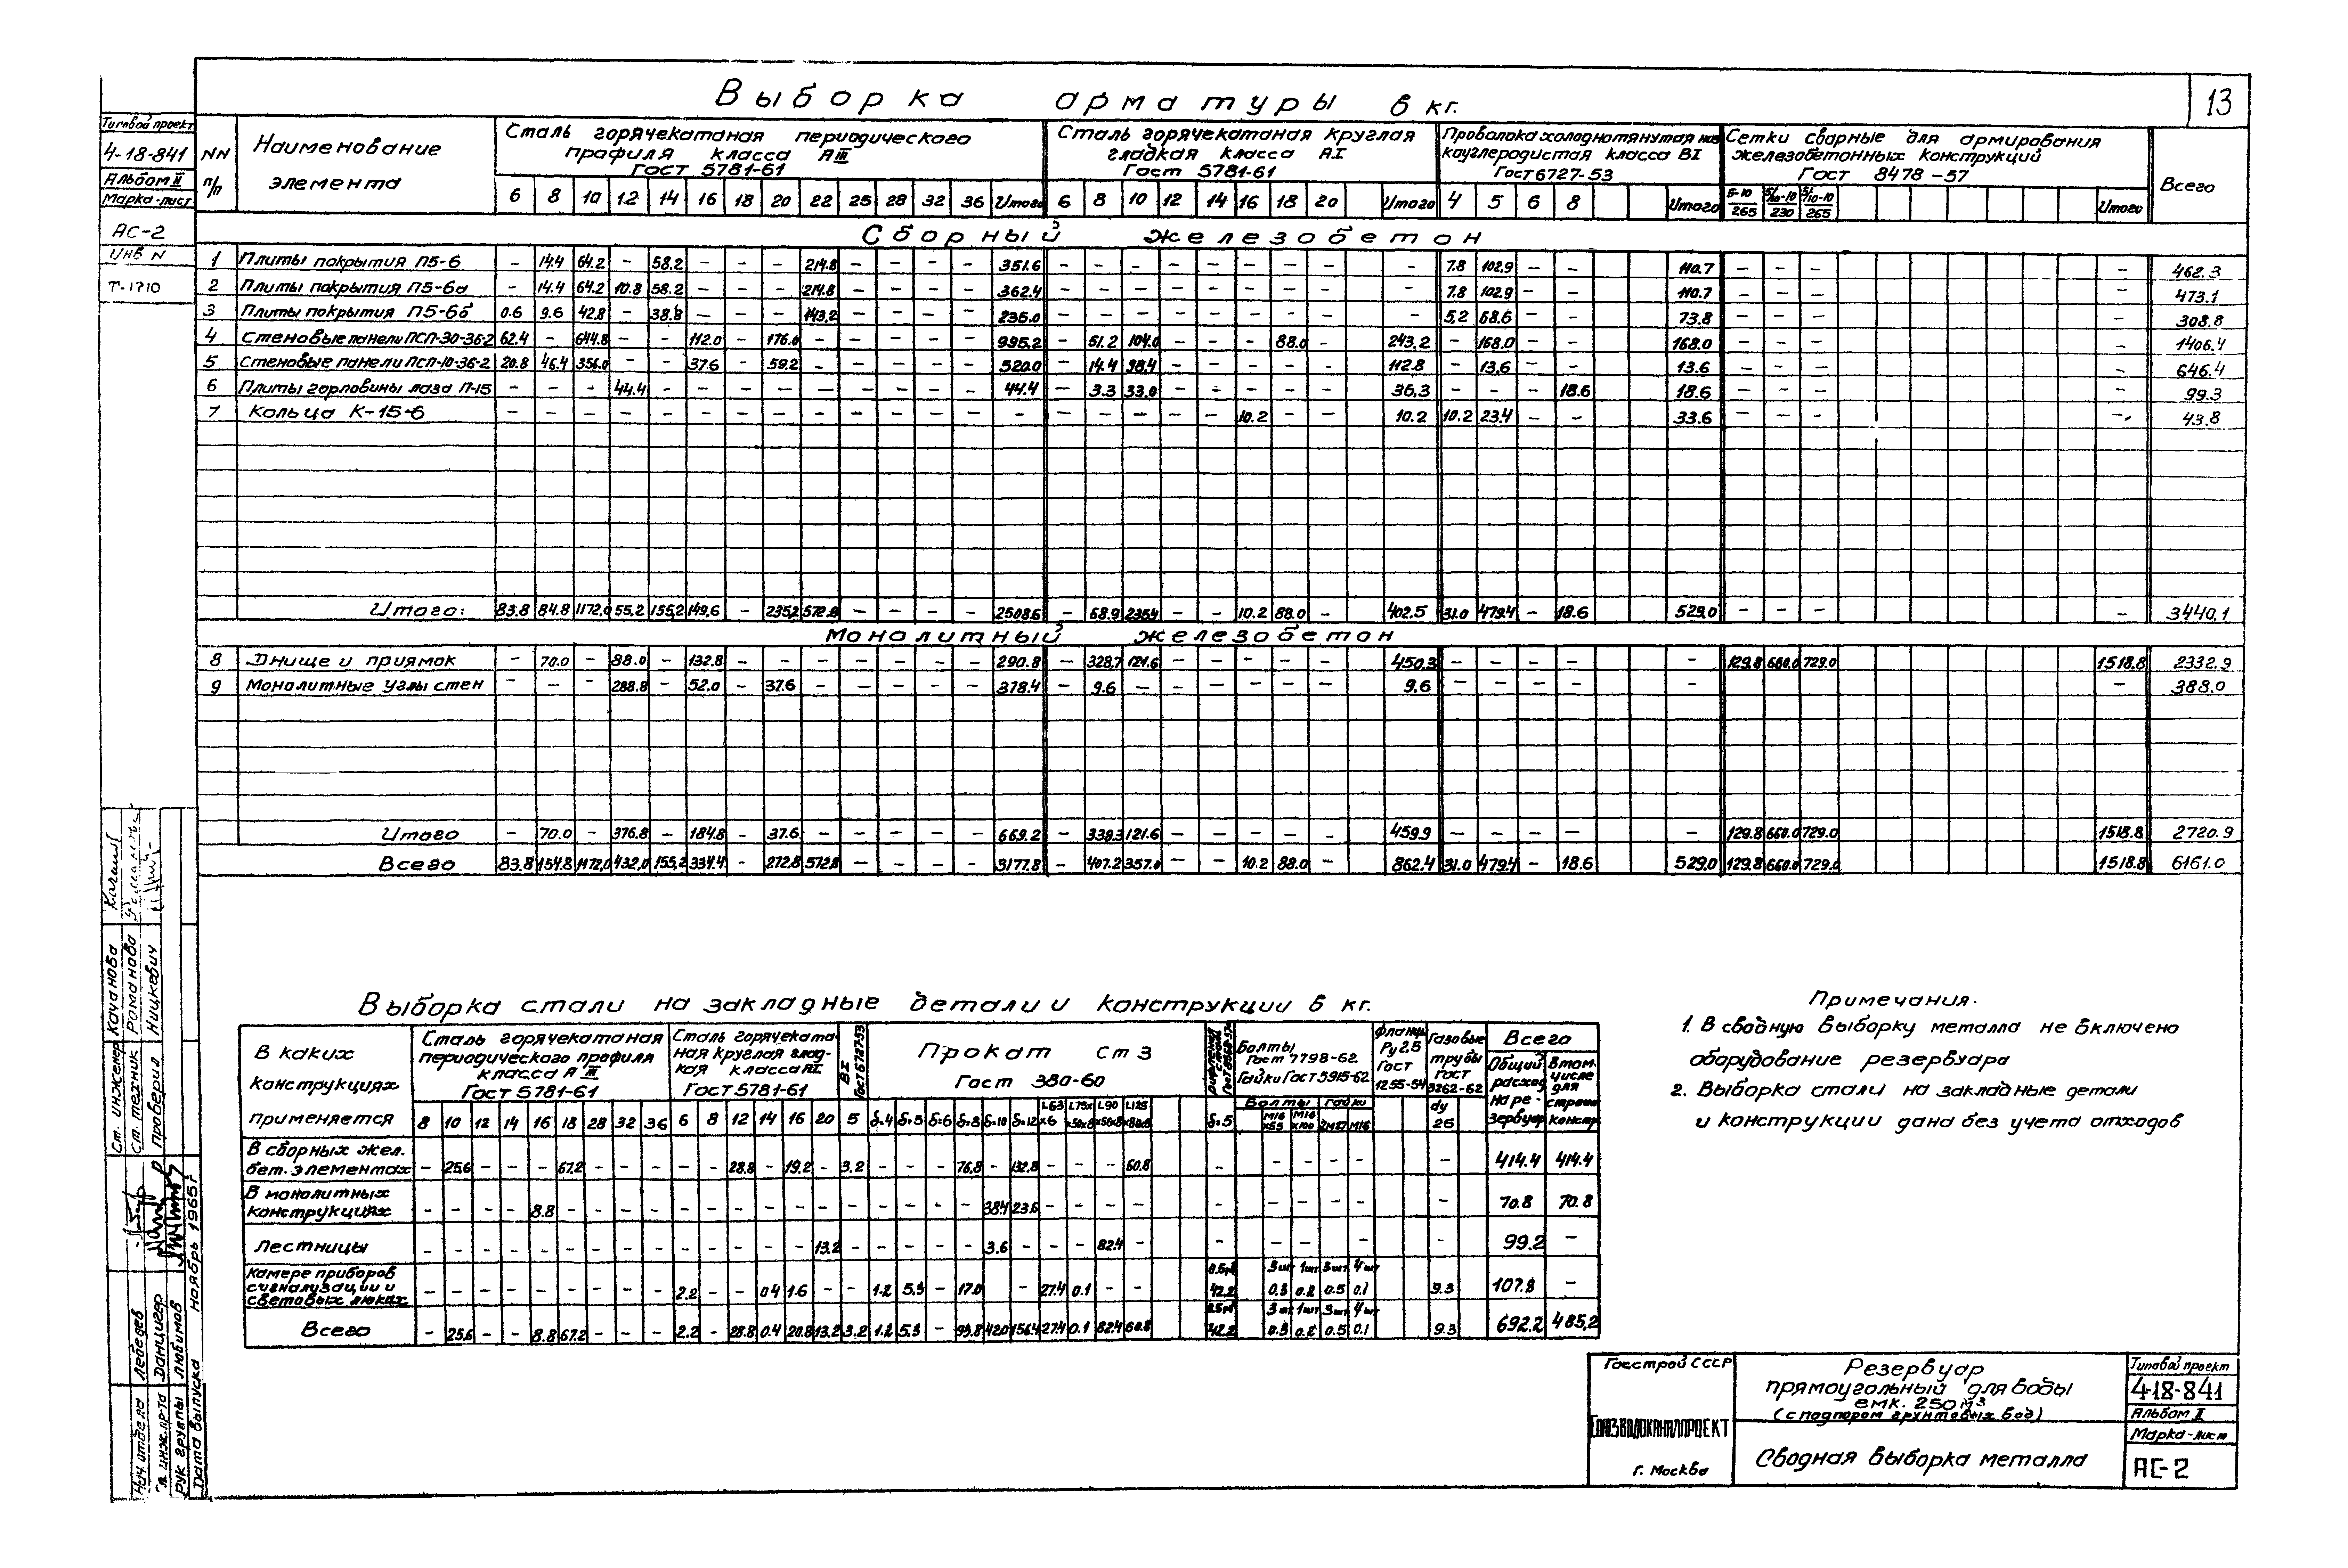 13
Выборка арматуры в кг.
Типовой проект
4-18-841
Альбом II
Марка-лист
АС-2
Инв N
Т-1710
NN п/п
Наименование элемента
Сталь горячекатаная периодического профиля класса АIII Гост 5781-61
Сталь горячекатаная круглая гладкая класса АI Гост 5781-61
Гост 6727-53
Сетки сварные для армирования железобетонных конструкций Гост 8478-57
Всего
6 8 10 12 14 16 18 20 22 25 28 32 36 Итого 6 8 10 12 14 16 18 20 Итого 4 5 6 8 Итого Итого
Сборный железобетон
1 Плиты покрытия П5-6 - 14.4 64.2 - 58.2 - - - 214.8 - - - - 351.6 - - - - - - - - - 7.8 102.9 - - 110.7 - - - - 462.3
2 Плиты покрытия П5-6а - 14.4 64.2 10.8 58.2 - - - 214.8 - - - - 362.4 - - - - - - - - - 7.8 102.9 - - 110.7 - - - - 473.1
3 Плиты покрытия П5-6б 0.6 9.6 42.8 - 38.8 - - - 143.2 - - - - 235.0 - - - - - - - - - 5,2 68.6 - - 73.8 - - - - 308.8
4 Стеновые панели ПСП-30-36-2 62.4 - 644.8 - - 112.0 - 176.0 - - - - - 995.2 - 51.2 104.0 - - - 88.0 - 243.2 - 168.0 - - 168.0 - - - - 1406.4
5 Стеновые панели ПСП-10-36-2 20.8 46.4 356.0 - - 37.6 - 59.2 - - - - - 520.0 - 14.4 98.4 - - - - - 112.8 - 13.6 - - 13.6 - - - - 646.4
6 Плиты горловины лаза П-15 - - - 44.4 - - - - - - - - - 44.4 - 3.3 33.0 - - - - - 36,3 - - - 18.6 18.6 - - - - 99.3
7 Кольца К-15-6 - - - - - - - - - - - - - - - - - - - 10.2 - - 10.2 10.2 23.4 - - 33.6 - - - - 43.8
Итого: 83.8 84.8 1172.0 55,2 155,2 149,6 - 235,2 572.8 - - - - 2508.6 - 68.9 235.4 - - 10.2 88.0 - 402.5 31.0 479.4 - 18.6 529.0 - - - - 3440,1
Монолитный железобетон
8 Днище и приямок - 70.0 - 88.0 - 132.8 - - - - - - - 290.8 - 328,7 121.6 - - - - - 450.3 - - - - - 129.8 660.0 729.0 1518.8 2332.9
9 Монолитные углы стен - - - 288.8 - 52.0 - 37.6 - - - - - 378.4 - 9.6 - - - - - - 9.6 - - - - - - - - - 388.0
Итого - 70.0 - 376.8 - 184.8 - 37.6 - - - - - 669.2 - 338.3 121.6 - - - - - 459.9 - - - - - 129.8 660.0 729.0 1518.8 2720.9
Всего 83.8 154.8 1172,0 432,0 155,2 334.4 - 272.8 572.8 - - - - 3177.8 - 407.2 357.0 - - 10.2 88.0 - 862.4 31.0 479.4 - 18.6 529.0 129.8 660.0 729.0 1518.8 6161.0
Выборка стали на закладные детали и конструкции в кг.
В каких конструкциях применяется
Сталь горячекатаная периодического профиля класса А III Гост 5781-61
Сталь горячекатаная круглая гладкая класса АI Гост 5781-61
ВI Гост 6727-53
Прокат ст 3 Гост 380-60
Болты Гост 7798-62 Гайки Гост 5915-62
Фланцы Ру2,5 Гост 1255-54
Газовые трубы Гост 3262-62
Всего
8 10 12 14 16 18 28 32 36 6 8 12 14 16 20 5 δ=4 δ=5 δ=6 δ=8 δ=10 δ=12 δ=5 dy 25
В сборных жел. бет. элементах - 25.6 - - - 67.2 - - - - - 28.8 - 19.2 - 3.2 - - - 76.8 - 132.8 - - - 60.8 - - - - - - 414.4 414.4
В монолитных конструкциях - - - - 8.8 - - - - - - - - - - - - - - - 38.4 23.6 - - - - - - - - - - 70.8 70.8
Лестницы - - - - - - - - - - - - - - 13.2 - - - - - 3.6 - - - 82.4 - - - - - - 99.2 -
Камере приборов сигнализации и световых люках - - - - - - - - - 2.2 - - 0.4 1.6 - - 1.2 5.3 - 17.0 - 27.4 0.1 - - 42.2 3шт 1шт 3шт 4шт 0.3 0.2 0.5 0.1 9.3 107.8 -
Всего - 25.6 - - 8.8 67.2 - - - 2.2 - 28.8 0.4 20.8 13.2 3.2 1.2 5.3 - 93.8 42.0 156.4 27.4 0.1 82.4 60.8 42.2 3шт 1шт 3шт 4шт 0.3 0.2 0.5 0.1 9.3 692.2 485,2
Примечания.
1. В сводную выборку металла не включено
оборудование резервуара
2. Выборка стали на закладные детали
и конструкции дана без учета отходов
Ст. инженер Качанова
Ст. техник Романова
Проверил Ницкевич
Нач. отдела Лебедев
Гл. инж. пр-та Данцигер
Рук группы Любитов
Дата выпуска ноябрь 1965г
Госстрой СССР
Союзводоканалпроект
г. Москва
Резервуар
прямоугольный для воды
емк. 250 м³
(с подпором грунтовых вод)
Сводная выборка металла
Типовой проект
4-18-841
Альбом II
Марка-лист
АС-2